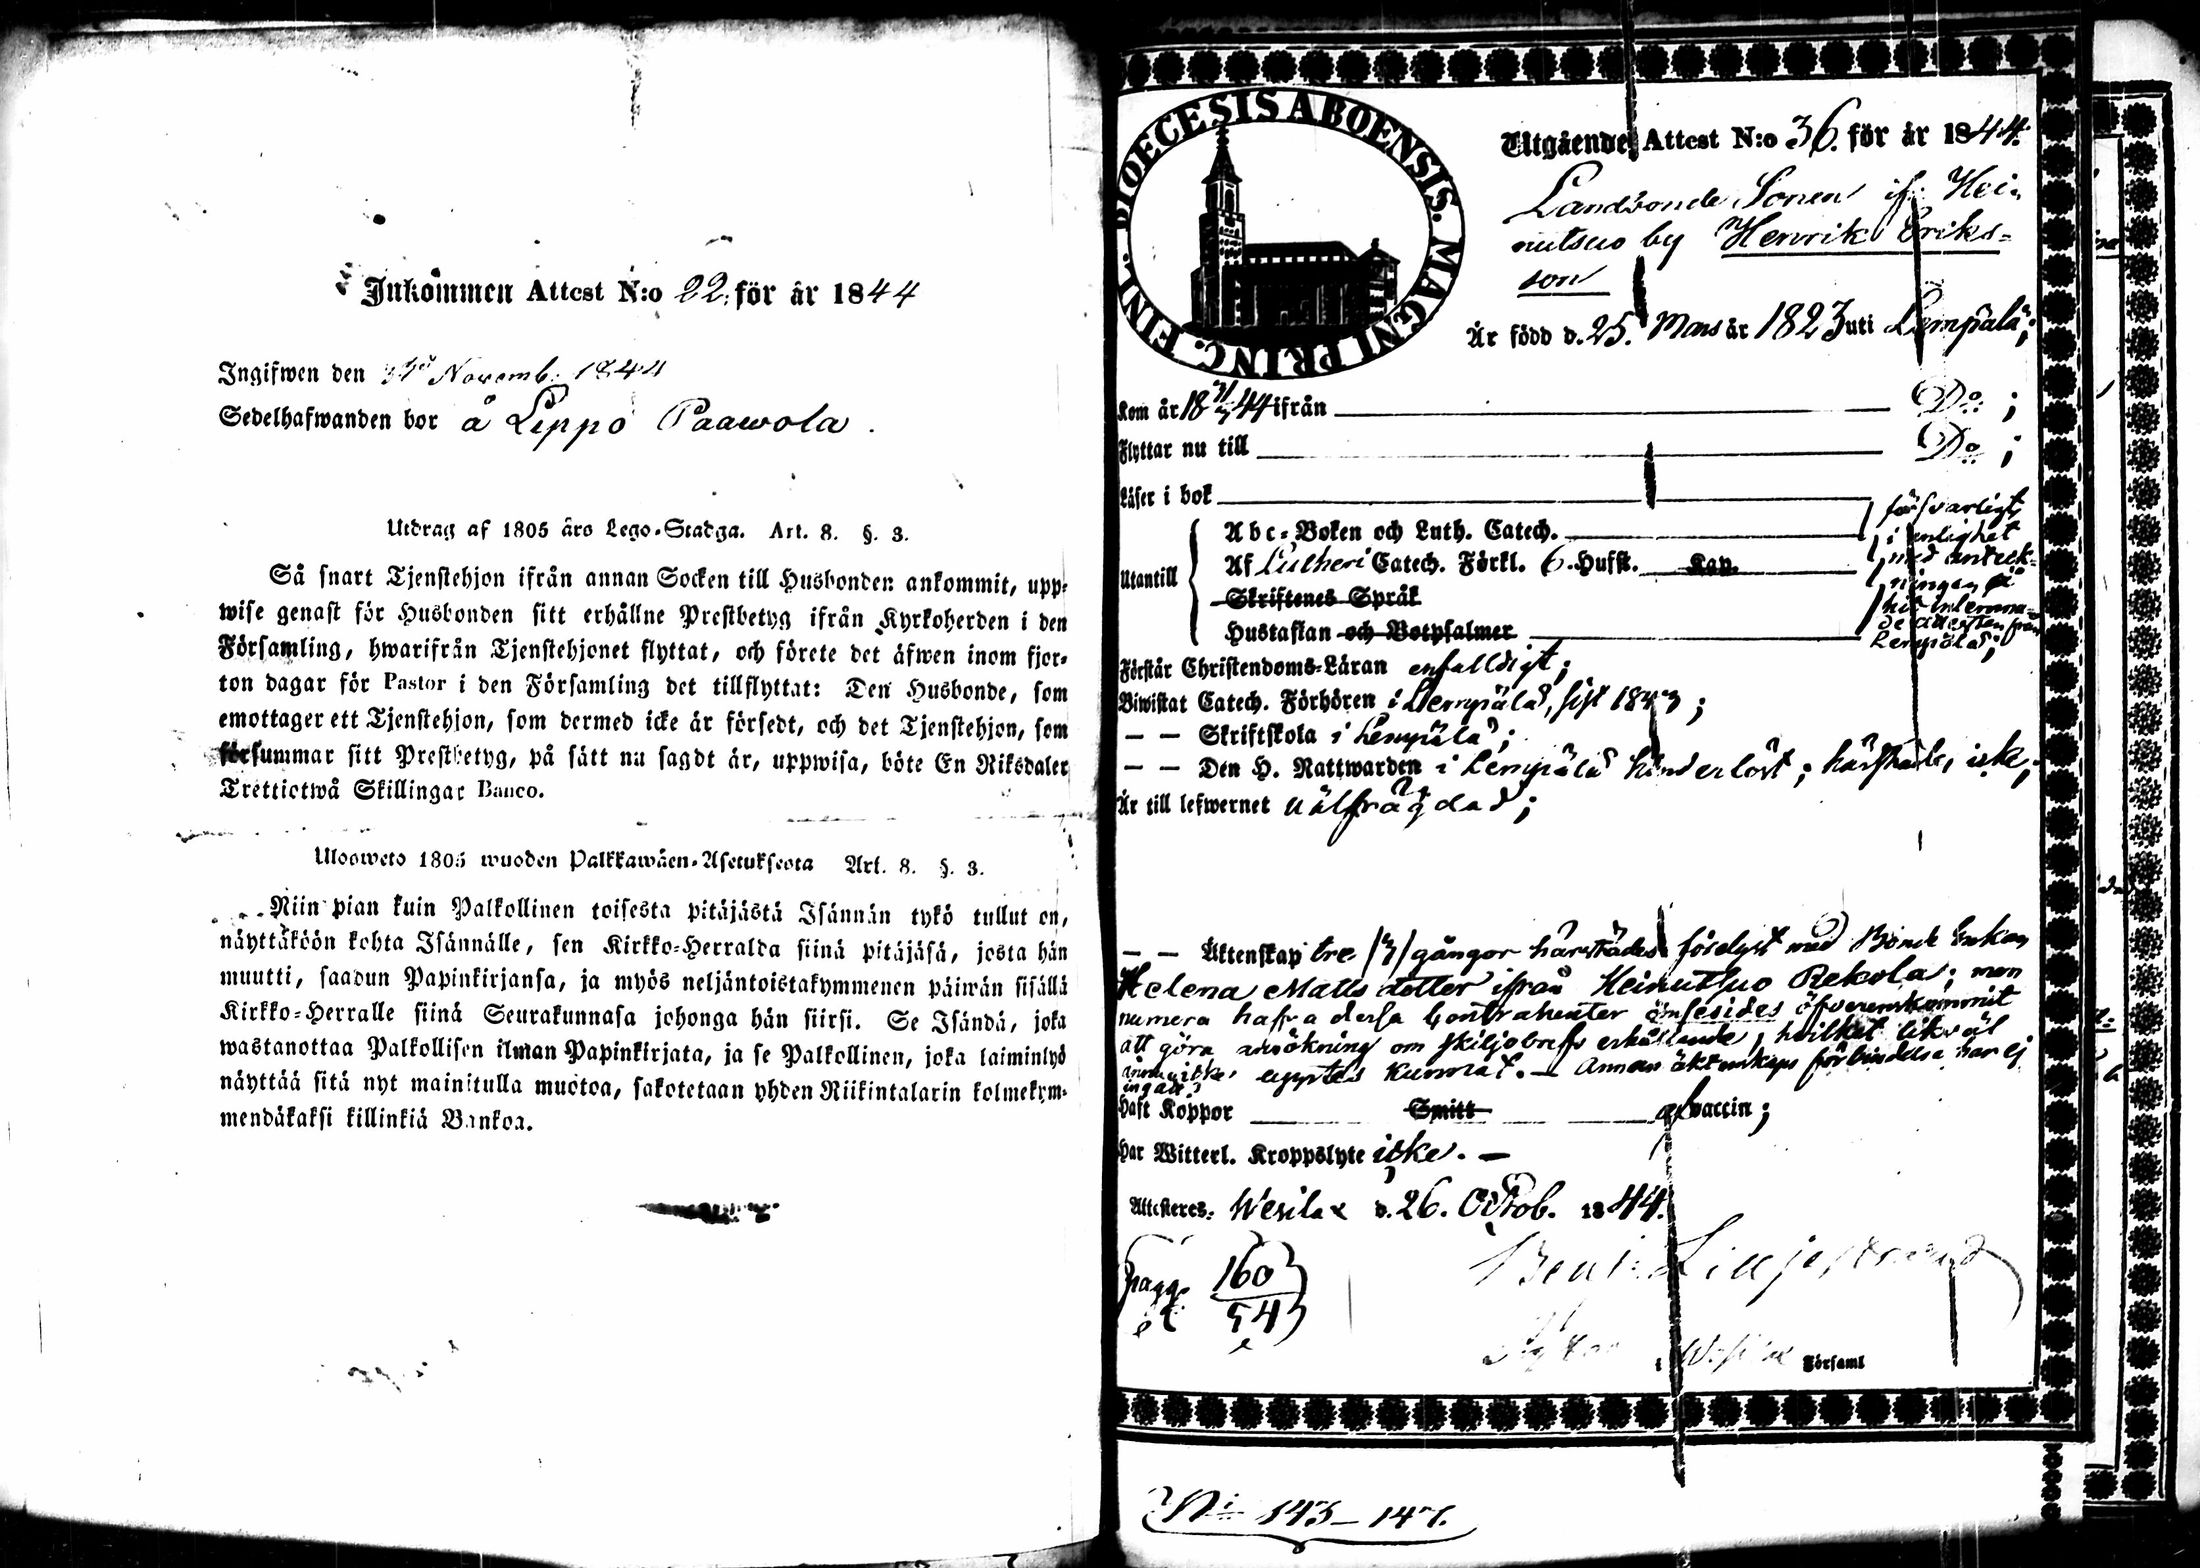 Inkommen Attest N:o 22. för år 1844
Ingifwen den Novemb. 1844
Sedelhafwanden bor å Leppo Paawola.
Utdrag af 1805 års Lego-Stadga. Art. 8. §. 3.
Så snart Tjenstehjon ifrån annan Socken till Husbonden ankommit, upp-
wise genast för Husbonden sitt erhållne Prestbetyg ifrån Kyrkoherden i den
Församling, hwarifrån Tjenstehjonet flyttat, och förete det äfwen inom fjor-
ton dagar för Pastor i den Församling det tillflyttat: Den Husbonde, som
emottager ett Tjenstehjon, som dermed icke är försedt, och det Tjenstehjon, som
försummar sitt Prestbetyg, på sätt nu sagdt är, uppwisa, böte En Riksdaler
Trettiotwå Skillingar Banco.
Ulosweto 1805 wuoden Palkkawäen-Asetuksesta Art. 8. §. 3.
Niin pian kuin Palkollinen toisesta pitäjästä Isännän tykö tullut on,
näyttäköön kohta Isännälle, sen Kirkko-Herralda siinä pitäjäsä, josta hän
muutti, saadun Papinkirjansa, ja myös neljäntoistakymmenen päiwän sisällä
Kirkko-Herralle siinä Seurakunnasa johonga hän siirsi. Se Isändä, joka
wastanottaa Palkollisen ilman Papinkirjata, ja se Palkollinen, joka laiminlyö
näyttää sitä nyt mainitulla muotoa, sakotetaan yhden Riikintalarin kolmekym-
mendäkaksi killinkiä Bankoa.
DIOECESIS ABOENSIS. MAGNI PRINC. FINL.
Utgående Attest N:o 36. för år 1844.
Landbonde Sonen if: Hei-
nutsuo by Henrik Eriks-
son
Är född d. 25. Mars år 1823 uti Lempälä;
Kom år 18 44 ifrån Do;
Flyttar nu till Do;
Läser i bok försvarligt
Abc-Boken och Luth. Catech. i enlighet
Utantill Af Lutheri Catech. Förkl. 6. Hufst. Kap. med anteck-
Skriftenes Språk ningen å
Hustaflan och Botpsalmer hit inlemna-
de attesten från
Lempälä;
Förstår Christendoms-Läran enfalldigt;
Biwistat Catech. Förhören i Lempälä, sist 1843;
— — Skriftskola i Lempälä;
— — Den H. Nattwarden i Lempälä hinderlöst; härstädes icke;
Är till lefwernet välfrägdad;
— — Äktenskap tre /3/ gångor härstädes förelyst med Bonde Enkan
Helena Matts dotter ifrån Heinutsuo Rekola; men
numera hafva dessa Contrahenter ömsesides öfverenskommit
att göra ansökning om skiljobrefs erhållande, hvilket likväl
ännu icke egt rum. — Annan äktenskaps förbindelse har ej
ingått;
Haft Koppor Smitt af vaccin;
Har Witterl. Kroppslyte icke. —
Attesteres: Wesilax d. 26. Octob. 1844.
pagg. 160
54
Bengt Lilljestrand
i Församl
No 143–147.